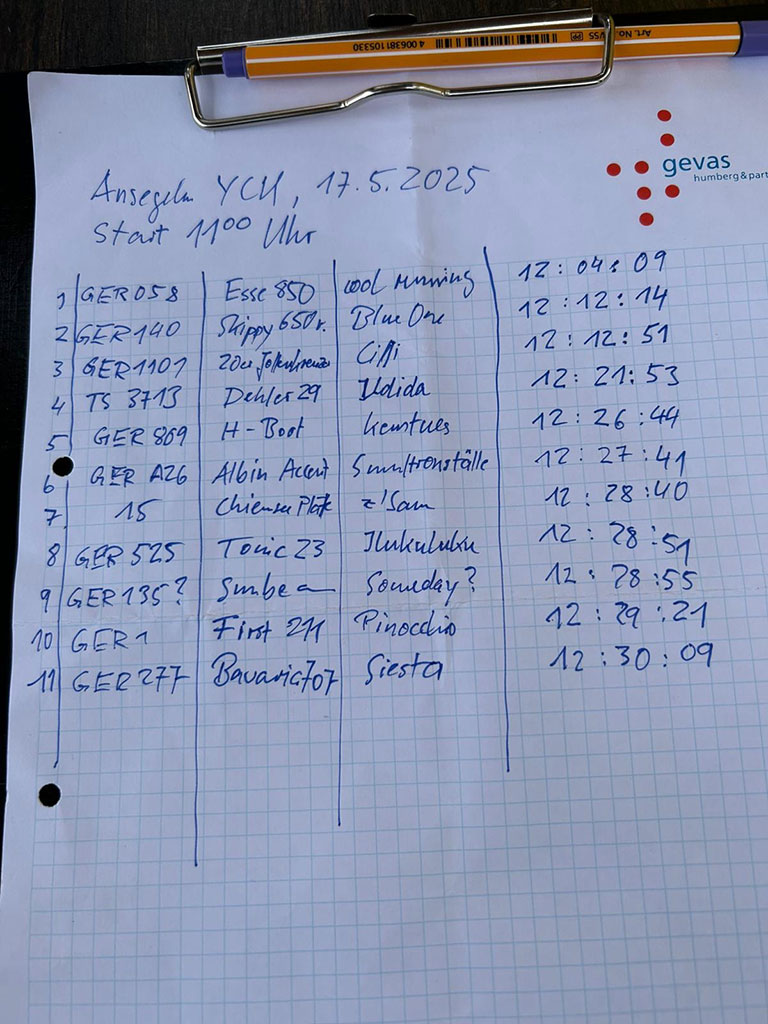 Art. No. 4 006381 105330
gevas
humberg & part
Ansegeln YCU, 17.5.2025
Start 11⁰⁰ Uhr
1 GER 058 Esse 850 cool running 12:04:09
2 GER 140 Skippy 650 r. Blue One 12:12:14
3 GER 1101 20er Jollenkreuzer 12:12:51
4 TS 3713 Dehler 29 Ildida 12:21:53
5 GER 869 H-Boot 12:26:44
6 GER A26 Albin Accent 12:27:41
7 15 Chiemsee Plätte z'Sam 12:28:40
8 GER 525 Tonic 23 Ilukuluku 12:28:51
9 GER 135? Sunbeam Someday? 12:28:55
10 GER 1 First 211 Pinocchio 12:29:21
11 GER 277 Bavaria 707 Siesta 12:30:09